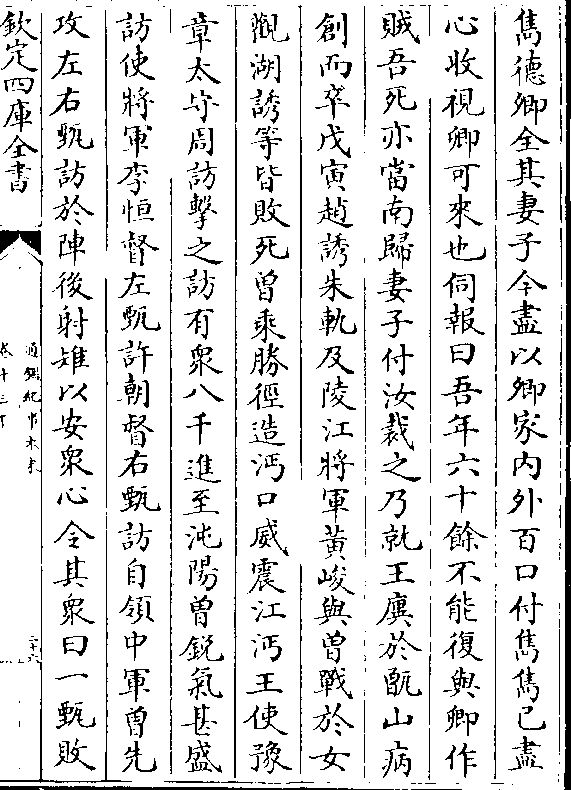 雋德卿全其妻子今盡以卿家內外百口付雋雋已盡
心收視卿可來也伺報曰吾年六十餘不能復與卿作
賊吾死亦當南歸妻子付汝裁之乃就王廙於甑山病
創而卒戊寅趙誘朱軌及陵江將軍黃峻與曾戰於女
觀湖誘等皆敗死曾乘勝徑造沔口威震江沔王使豫
章太守周訪擊之訪有衆八千進至沌陽曾銳氣甚盛
訪使將軍李恒督左甄許朝督右甄訪自領中軍曾先
攻左右甄訪於陣後射雉以安衆心令其衆曰一甄敗
欽定四庫全書
通鑑紀事本末